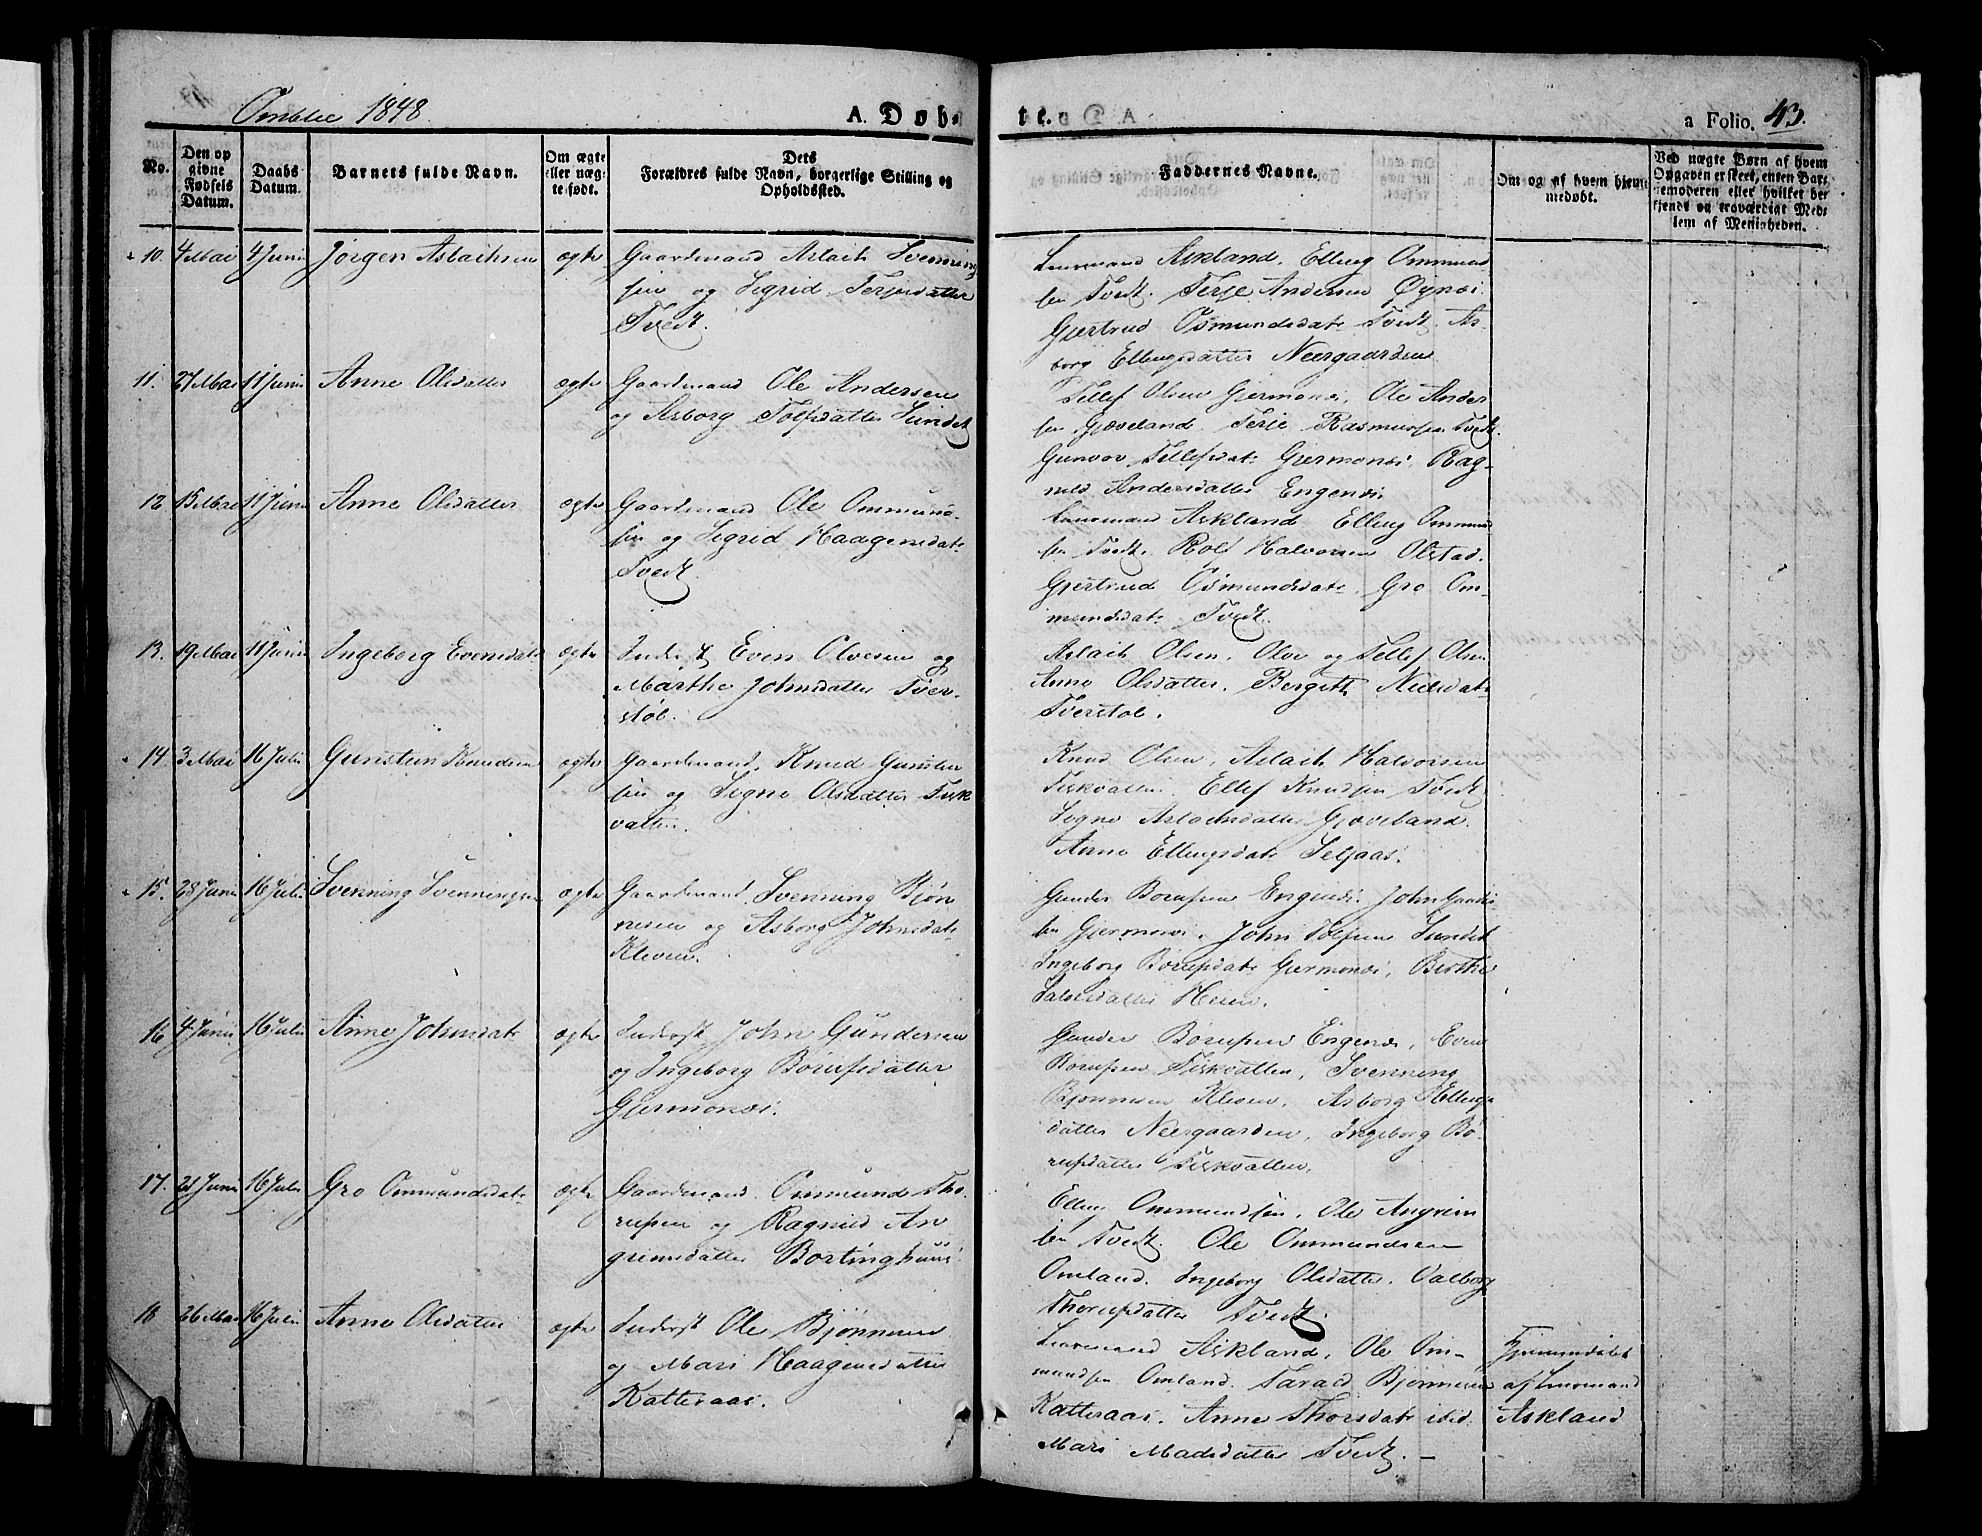 Omblie 1848
A. Døb-
te.
a Folio. 43.
No.
Den op
givne
Fødsels
Datum.
Daabs
Datum.
Barnets fulde Navn.
Om ægte
eller uæg-
te født.
Dets
Forældres fulde Navn, borgerlige Stilling og
Opholdssted.
Faddernes Navne.
Om og af hvem hjem-
medøbt.
Ved uægte Børn af hvem
Opgaven er skeet, enten Bar-
nemoderen eller hvilket be-
kjendt og troværdigt Med-
lem af Menigheden.
10. 4 Mai 4 Juni Jørgen Aslachsen ægte Gaardmand Aslach Svennung
sen og Sigrid Terjesdatter
Tvedt.
Lensmand Askland. Elling Ommund
sen Tvedt. Terje Andersen Øynæs.
Gjertrud Osmundsdatr Tvedt. As-
borg Ellingsdatter Neergaarden
11. 27 Mai 11 Juni Anne Olsdatter ægte Gaardmand Ole Andersen
og Asborg Tolfsdatter Sundet
Tellef Olsen Gjermonæs, Ole Ander
sen Gjæveland. Terje Rasmussen Tvedt.
Gunvor Tellefsdatr Gjermonæs, Rag-
nild Andersdatter Engenæs.
12 15 Mai 11 Juni Anne Olsdatter ægte Gaardmand Ole Ommund-
sen og Sigrid Haagensdatr
Tvedt.
Lensmand Askland Elling Ommund
sen Tvedt. Rolf Halvorsen Olstad.
Gjertrud Osmundsdatr, Gro Om-
mundsdatr Tvedt.
13. 19 Mai 11 Juni Ingeborg Evensdatr ægte Inderst Even Olvesen og
Marthe Johnsdatter Tver-
støl.
Aslach Olsen, Olov og Tellef Olsen
Anne Olsdatter. Bergith Nielsdatr
Tverstøl.
14. 3 Mai 16 Juli Gunsten Knudsen ægte Gaardmand. Knud Gunsten
sen og Signe Olsdatter Fisk
vatten.
Knud Olsen, Aslach Halvorsen
Fiskvatten. Ellef Knudsen Tvedt
Signe Aslachsdatter Gjæveland.
Anne Ellingsdatr Seljaas.
15. 28 Juni 16 Juli Svenning Svenningsen ægte Gaardmand. Svenning Bjøn
nesen og Asborg Johnsdatr
Kleven.
Gunder Børufsen Engenæs. John Gunder
sen Gjermonæs. John Tolfsen Sundet
Ingeborg Børufsdatr Gjermonæs, Berthe
Heien.
16 4 Juni 16 Juli Anne Johnsdatr ægte Inderst John Gundersen
og Ingeborg Børufsdatter
Gjermonæs.
Gunder Børufsen Engenæs, Even
Børufsen Fiskvatten, Svenning
Bjønnesen Kleven, Asborg Ellings
datter Neergaarden, Ingeborg Bø-
rufsdatter Fiskvatten.
17. 21 Juni 16 Juli Gro Ommundsdatr ægte Gaardmand Ommund Tho-
rufsen og Ragnild An
grimsdatter Bortinghuus.
Elling Ommundsen. Ole Angrim
sen Tvedt. Ole Ommundsen
Omland. Ingeborg Olsdatter. Valborg
Thorufsdatter Tvedt.
18 26 Mai 16 Juli Anne Olsdatter ægte Inderst Ole Bjønnesen
og Mari Haagensdatter
Katteraas.
Lensmand Askland, Ole Om-
mundsen Omland. Tarald Bjønnesen
Katteraas. Anne Thorsdatr ibid.
Mari Madsdatter Tvedt. —
Hjemmedøbt
af Lensmand
Askland